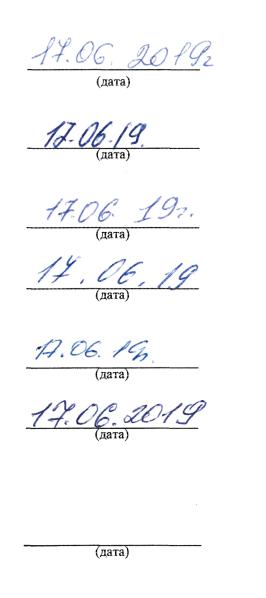 17.06. 2019г
(дата)
17.06.19.
(дата)
17.06. 19г.
(дата)
17.06.19
(дата)
17.06.19г.
(дата)
17.06.2019
(дата)
(дата)